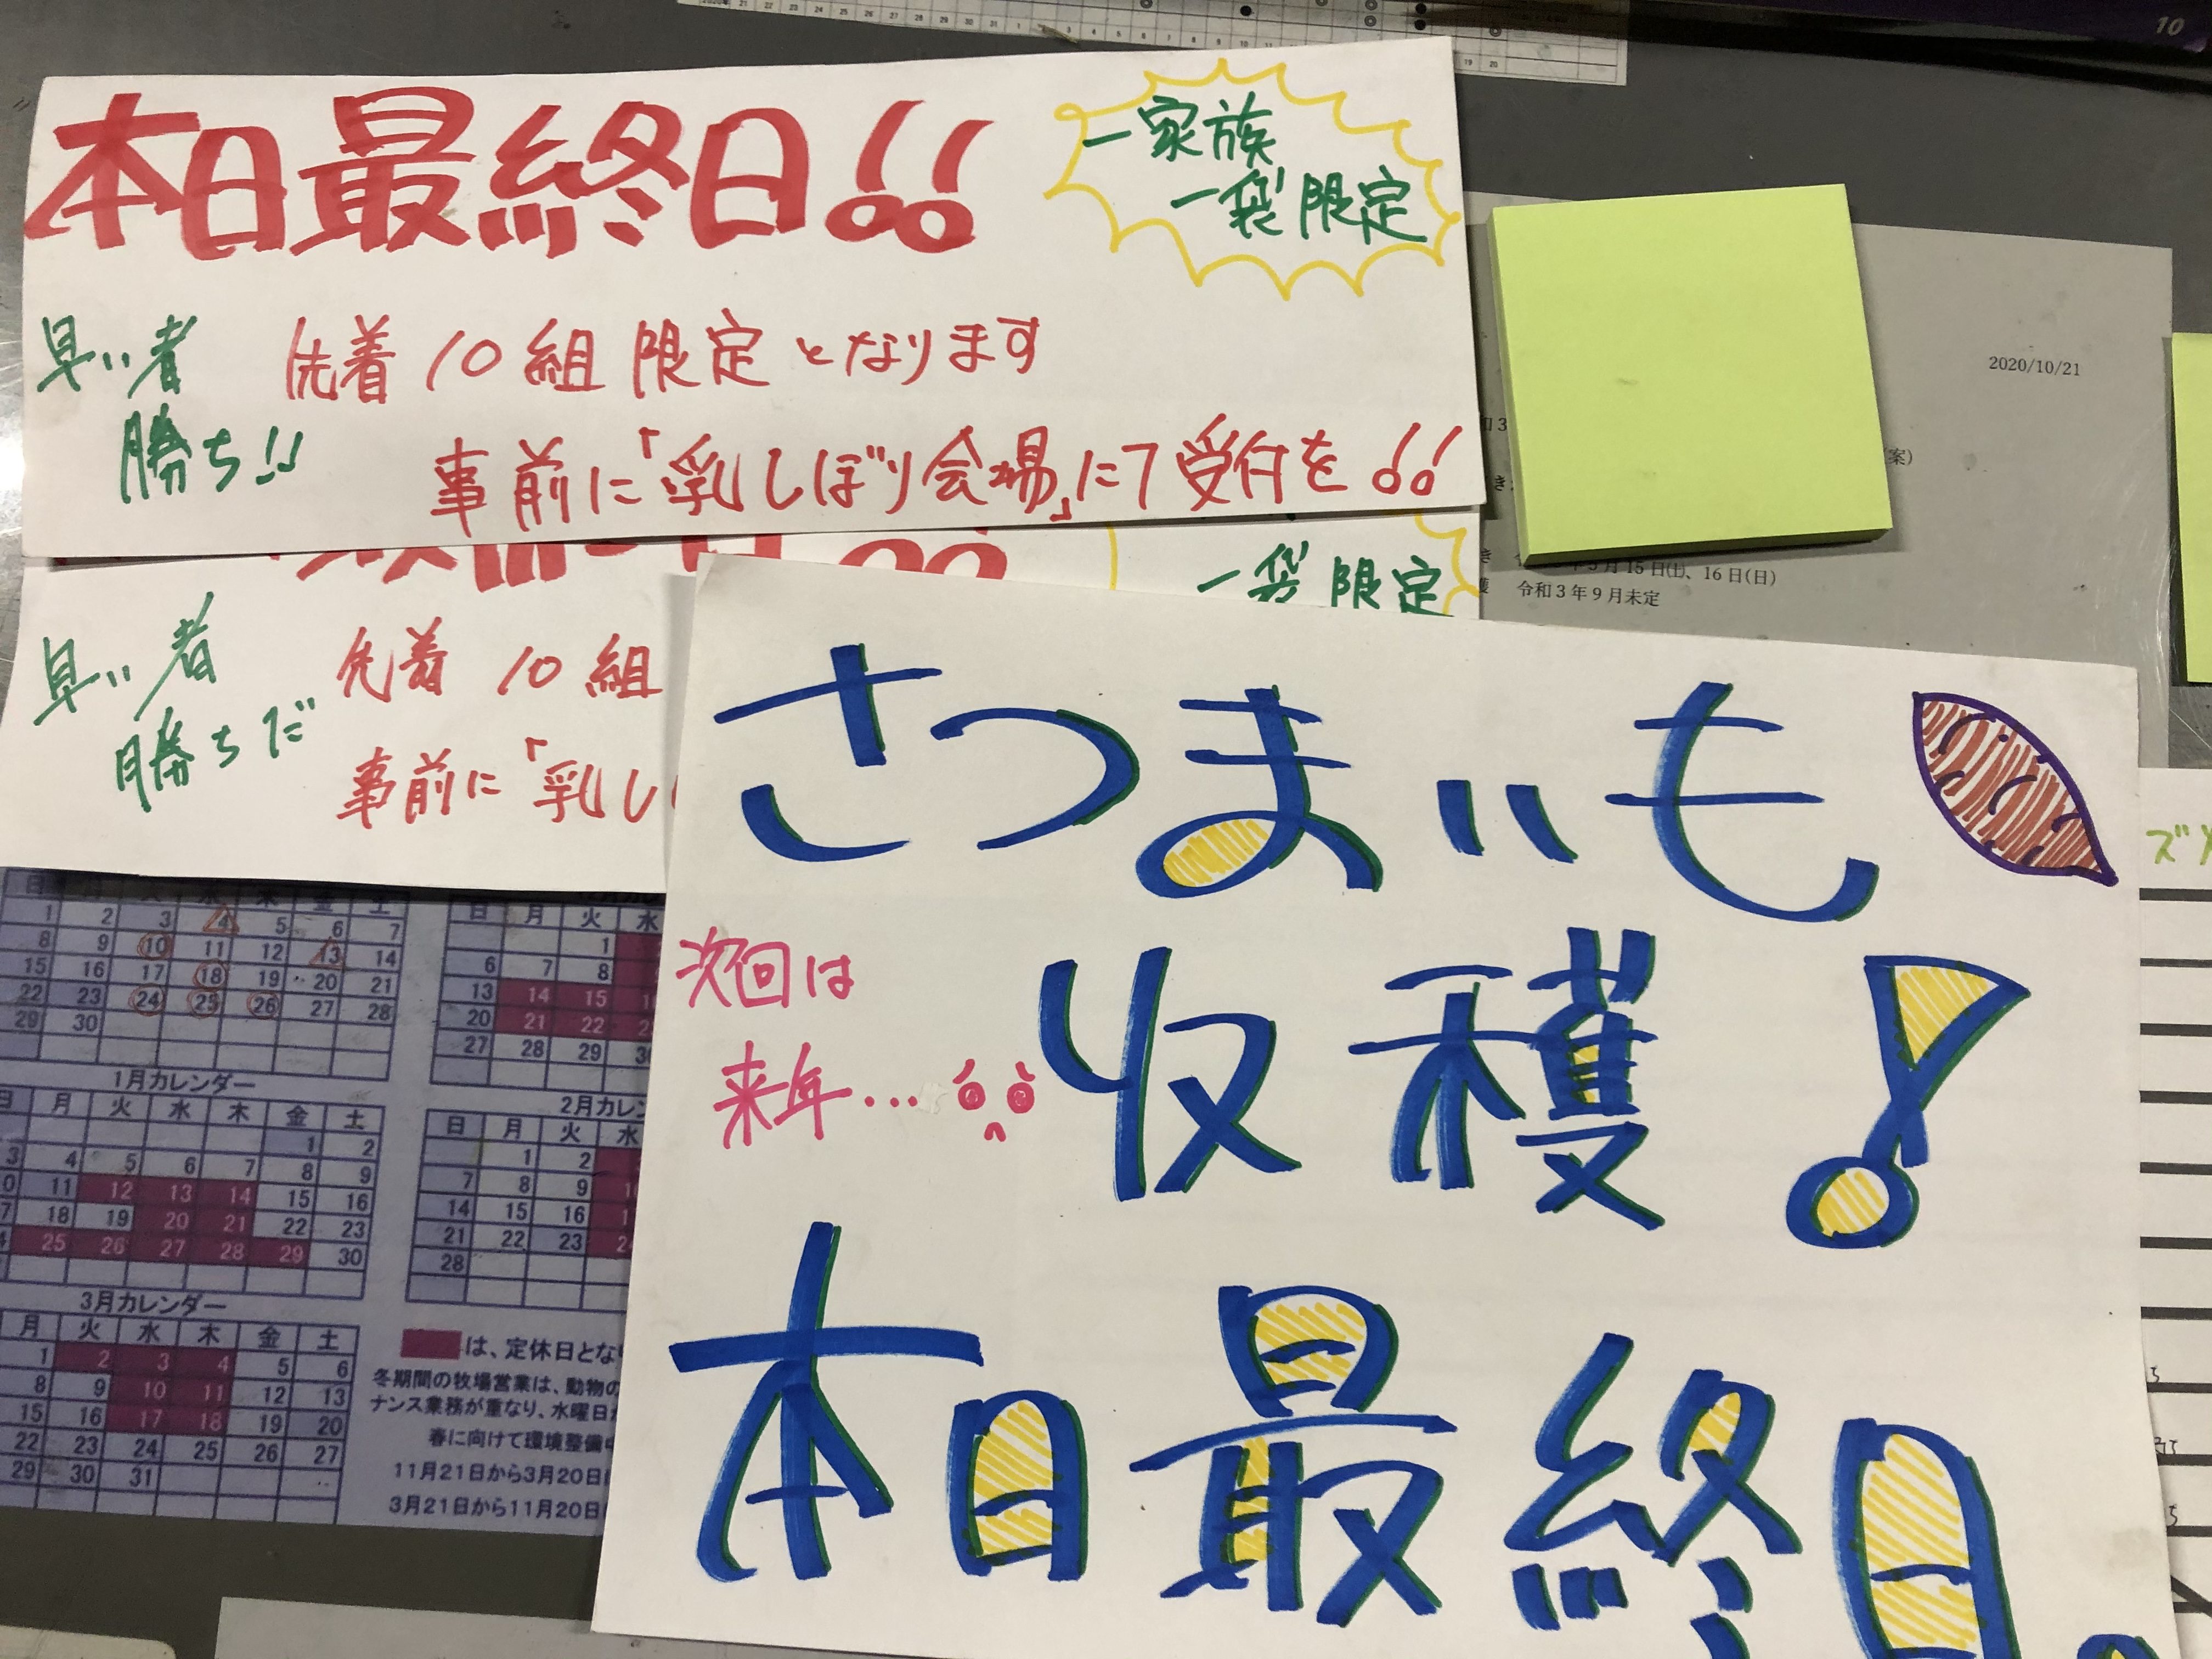 10
本日最終日!!
一家族
一袋限定
早い者
勝ち!!
先着10組限定となります
事前に「乳しぼり会場」にて受付を!!
2020/10/21
案)
月15日(土)、16日(日)
令和3年9月未定
一袋限定
早い者
勝ちだ
先着10組
事前に「乳し
さつまいも
収穫!
次回は
来年…
本日最終日
ズ
日 月 火 水 木 金 土
1 2 3 4 5 6 7
8 9 10 11 12 13 14
15 16 17 18 19 20 21
22 23 24 25 26 27 28
29 30
日 月 火 水
1
6 7 8
13 14 15
20 21 22
27 28 29
1月カレンダー
日 月 火 水 木 金 土
1 2
3 4 5 6 7 8 9
11 12 13 14 15 16
18 19 20 21 22 23
25 26 27 28 29 30
2月カレン
日 月 火 水
1 2
7 8 9
14 15 16
21 22 23
28
3月カレンダー
月 火 水 木 金 土
1 2 3 4 5 6
8 9 10 11 12 13
15 16 17 18 19 20
22 23 24 25 26 27
29 30 31
は、定休日とな
冬期間の牧場営業は、動物の
ナンス業務が重なり、水曜日
春に向けて環境整備
11月21日から3月20日
3月21日から11月20日